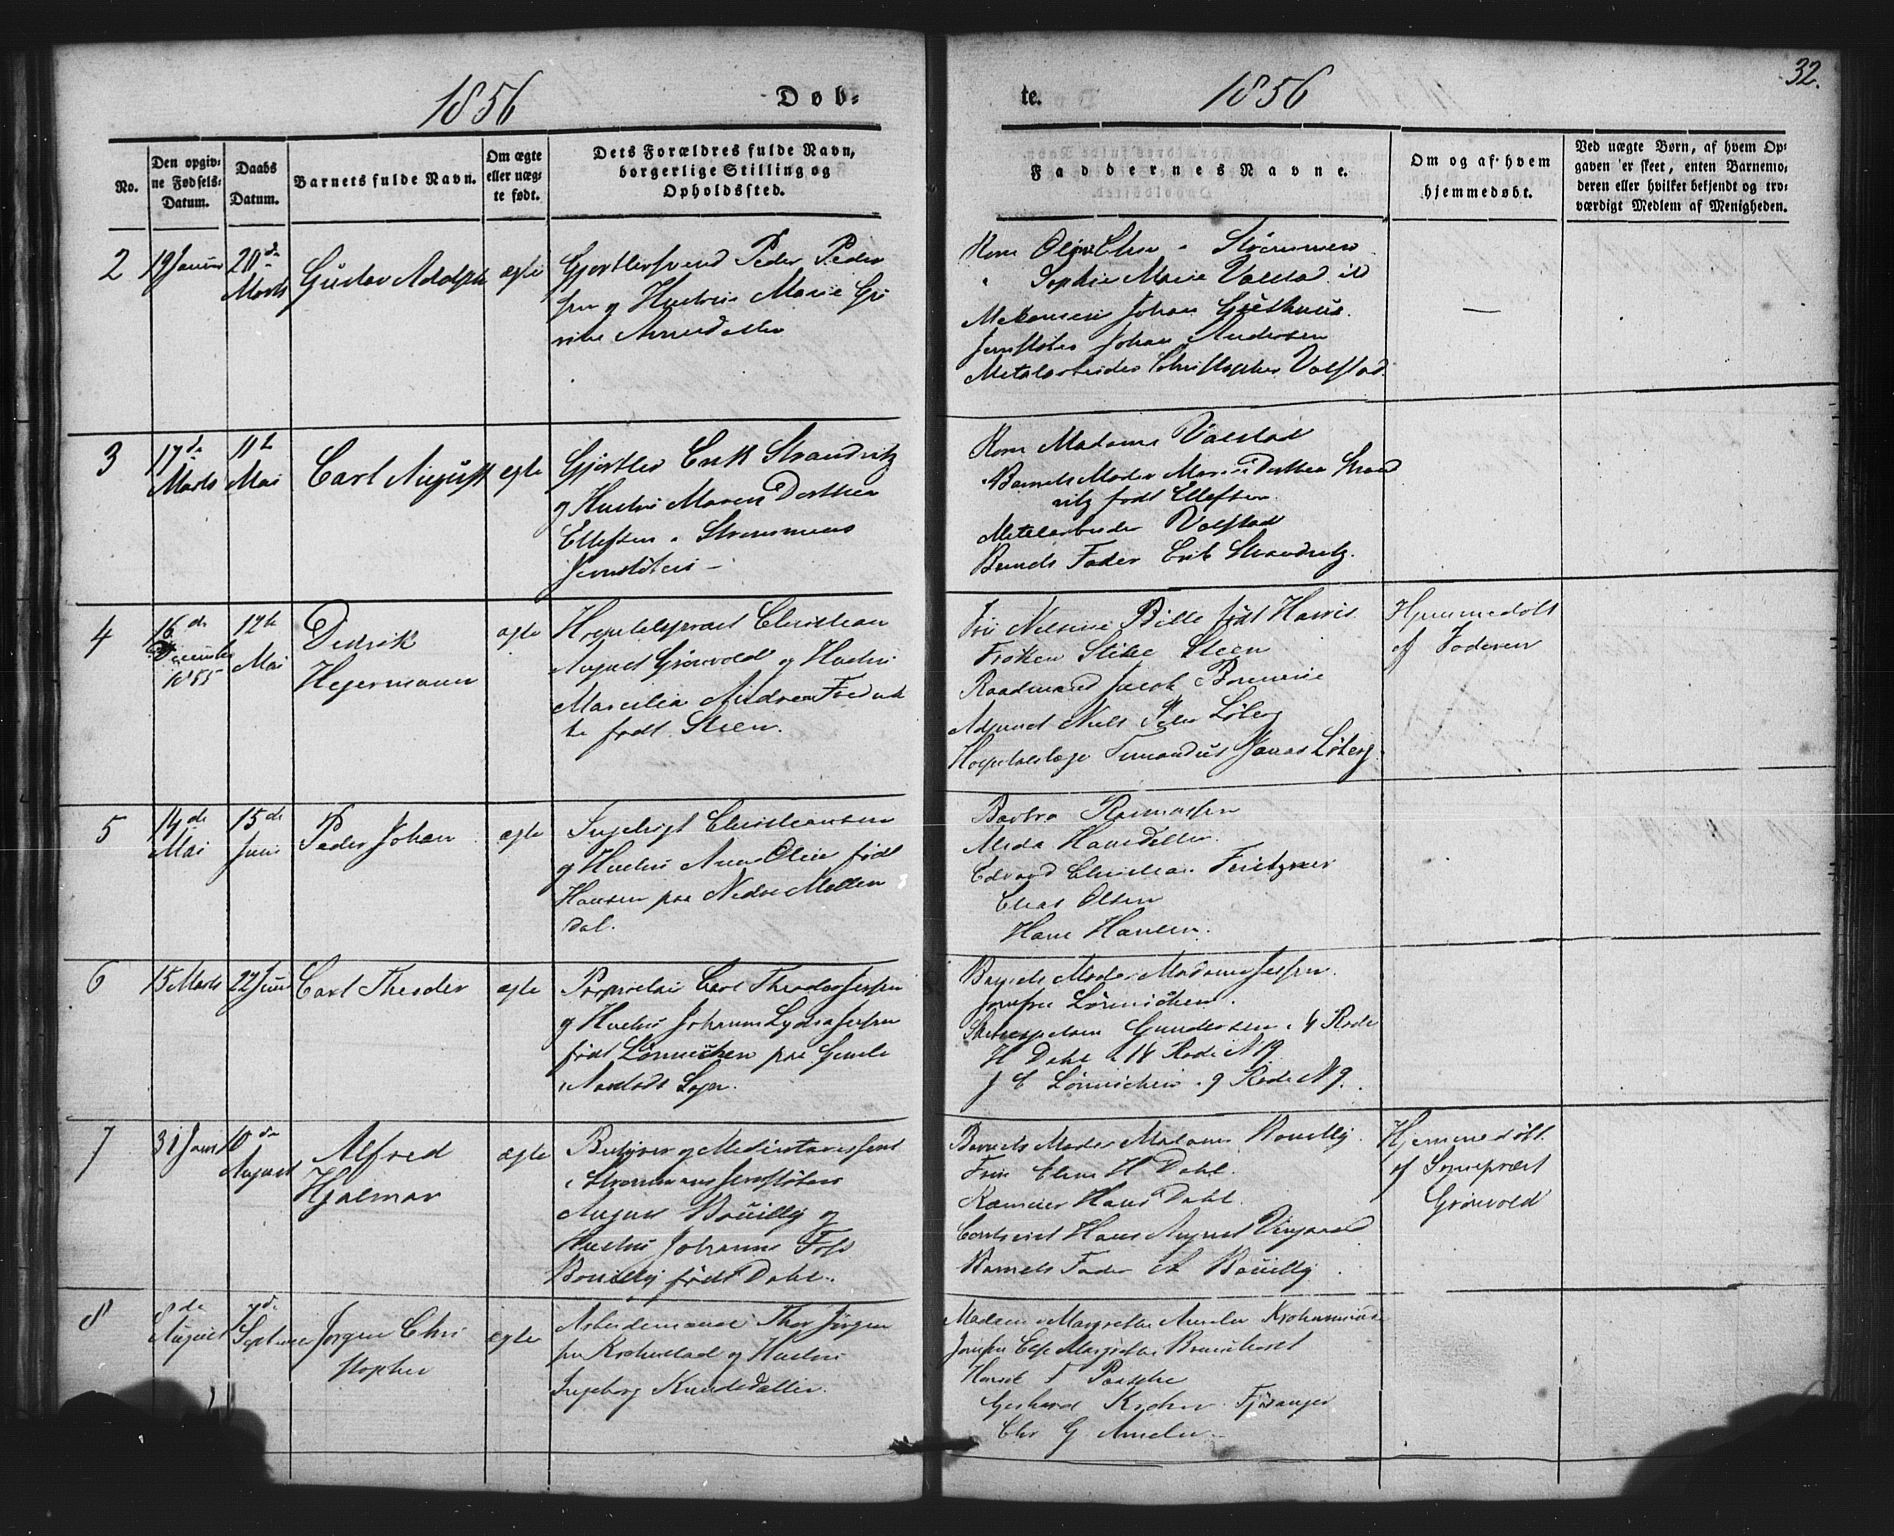 1856
Døb-
No.
Den opgiv-
ne Fødsels-
Datum.
Daabs
Datum.
Barnets fulde Navn.
Om ægte
eller uæg-
te født.
Dets Forældres fulde Navn,
borgerlige Stilling og
Opholdssted.
2
19 Januar
20de
Marts
Gustav Adolph
ægte
Gjørtlersvend Peder Peder
sen og Hustru Marie
Arnesdatter
3
17de
Marts
11te
Mai
Carl August
egte
Gjørtler Erik Strandvitz
og Hustru Maren Dorthea
Ellefsen Strømmens
Jernstøberi
4
16de
December
1855
12te
Mai
Didrik
Hegermann
ægte
Hospitalspræst Christian
August Grønvold og Hustru
Marcilia Andrea Fredrik
ke født Steen.
5
14de
Mai
15de
Juni
Peder Johan
ægte
Ingebrigt Christiansen
og Hustru Anne Oline født
Hansen paa Nedre Møllen
dal.
6
15 Marts
22 Juni
Carl Theodor
ægte
Proprietær Carl Theodor Jessen
og Hustru Johanne Lydia Jessen
født Lønnichen paa
Sogn.
7
31 Januar
10de
August
Alfred
Hjalmar
ægte
Bestyrer og Medinteressent
i Strømmens Jernstøberi
August Bouilly og
Hustru Johanne
Bouilly født Dahl.
8
8de
August
7de
September
Jørgen Chri
stopher
ægte
Arbeidsmand Thor Jørgen
sen Krohnstad og Hustru
Ingeborg Knudsdatter.
te.
1856
32.
Faddernes Navne.
Om og af hvem
hjemmedøbt.
Ved uægte Børn, af hvem Op-
gaven er skeet, enten Barnemo-
deren eller hvilker bekjendt og tro-
værdigt Medlem af Menigheden.
Kone Strømmen
" Sophie Marie Valstad
Johan
Jernstøber Johan Andersen
Metalarbeider Christopher Valstad
—
Kone Madame Valstad
Barnets Moder Maren Dorthea Strand
vitz født Ellefsen.
Metalarbeider Valstad
Barnets Fader Erik Strandvitz.
Fru Nelsine Bille født
Frøken Steen
Raadmand Jacob
Adjunct Niels Peter Løberg
Hospitalslæge Timandus Jonas Løberg
Hjemmedøbt
af Faderen
Barbra Rasmussen
Hansdatter
Edvard Christian
Elias Olsen
Hans Hansen.
Barnets Moder Madame Jessen.
Jomfru Lønnichen.
Gundersen 4 Rode
H Dahl 18 Rode N 19
J C Lønnichen 9 Rode N 9.
Barnets Moder Madame Bouilly.
Fru Elen H Dahl.
Kæmner Hans Dahl.
Hans August
Barnets Fader A Bouilly.
Hjemmedøbt
af Sognepræst
Grønvold
Madam Margrethe Amelia
Jomfru Else Margrethe
F Paasche
Gerhard Krohn Fjøsanger
Chr G Ameln